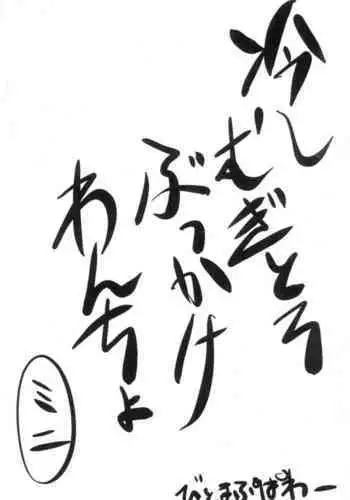 冷しむぎとろ
ぶっかけ
わんちょ
ミニ
びとまふ゜ぱわー